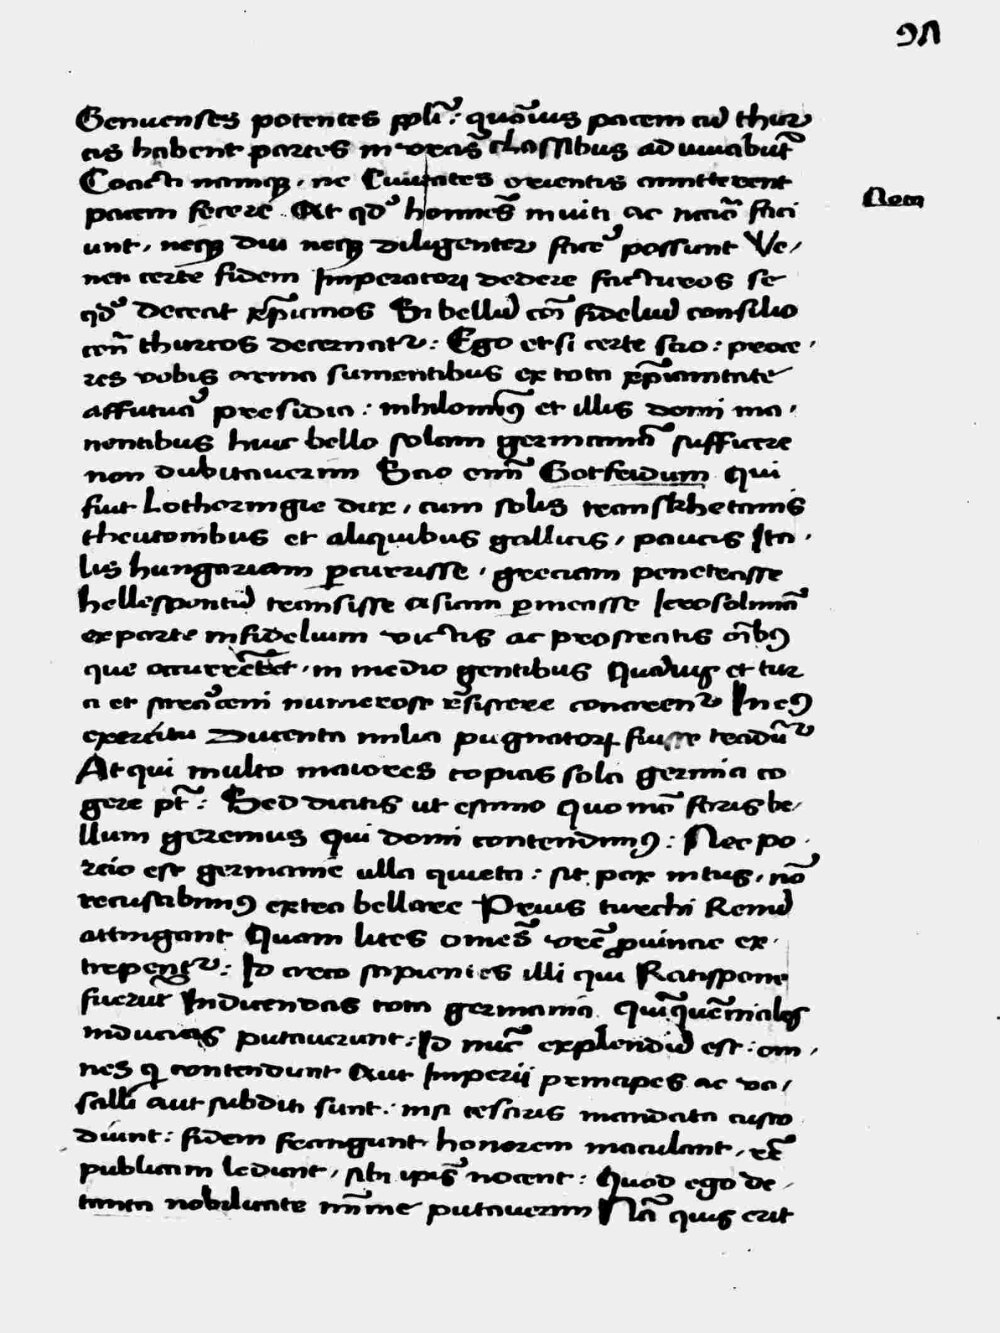 91
Genuenses potentes ppl̃i : quãuis pacem cũ thur
cis habent partes in vr̃as classibus ad iuuabũt
Coacti namq̃ . ne Ciuitates orientis amitterent
Nota
pacem fecere . At qd̃ homines inuiti ac metũ faci
unt , neq̃ diu neq̃ diligenter facẽ possunt Ve,
neti certe fidem Imperatori dedere facturos se
qd̃ deceat xp̃ianos Si bellũ cõ fidelũ consilio
cont̃ thurcos decernatr̃ : Ego etsi certe scio : proce,
res vobis arma sumentibus ex tota xp̃ianitate
affutuã presidia : nihilomĩ9 et illis domi ma,
nentibus huic bello solam germaniã sufficere
non dubitauerim Scio enĩ Gotfridum qui
fuit Lothoringie dux , cum solis transrhetanis
theutonibus et aliquibus gallicis , paucis Ita,
lis hungariam p̱currisse , greciam penetrasse
hellespontũ transisse asiam p̱measse Ierosolimã
ex parte infidelium victis ac prostratis õib9
que occurrẽt , in medio gentibus Quãuis et tur
ci et sarãceni numerose r̃sistere conarentr̃ In eo9
exercitu Ducenta milia pugnatorꝝ fuisse tradũtr̃
Atqui multo maiores copias sola germãia co
gere pt̃ : Sed dicitis ut estimo Quo mõ foris be,
llum geremus qui domi contendim9 : Nec po,
rcio est germanie ulla quieta : sit pax intus , nõ
recusabim9 extra bellare Prius turchi Renũ
attingant Quam lites omnes̃ vr̃e ꝓuincie ex,
tirpentr̃ : Id circo sapientes illi qui Ratispone
fuerũt Indicendas tota germania Quĩquẽniales
inducias putauerunt : Id nũc explendũ est : om,
nes q̃ contendunt Aut Imperii principes ac va,
salli aut subditi sunt : nisi cesaris mandata custo
diunt : fidem frangunt honorem maculant , rẽ
publicam ledunt , sibi ipis̃ nocent : Quod ego de,
tanta nobilitate mĩme putauerim Nã quis erit